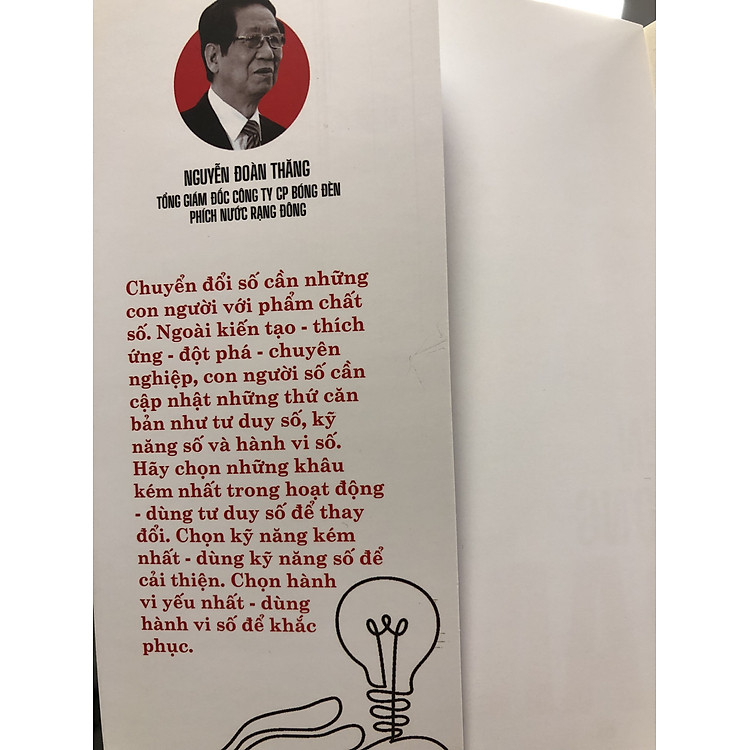 NGUYỄN ĐOÀN THĂNG
TỔNG GIÁM ĐỐC CÔNG TY CP BÓNG ĐÈN
PHÍCH NƯỚC RẠNG ĐÔNG
Chuyển đổi số cần những
con người với phẩm chất
số. Ngoài kiến tạo - thích
ứng - đột phá - chuyên
nghiệp, con người số cần
cập nhật những thứ căn
bản như tư duy số, kỹ
năng số và hành vi số.
Hãy chọn những khâu
kém nhất trong hoạt động
- dùng tư duy số để thay
đổi. Chọn kỹ năng kém
nhất - dùng kỹ năng số để
cải thiện. Chọn hành
vi yếu nhất - dùng
hành vi số để khắc
phục.